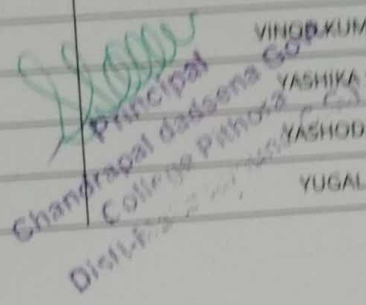 VINOD KUM
YASHIKA
YASHOD
YUGAL
Principal
Chandrapal dadsena Gov
College Pithora
Distt